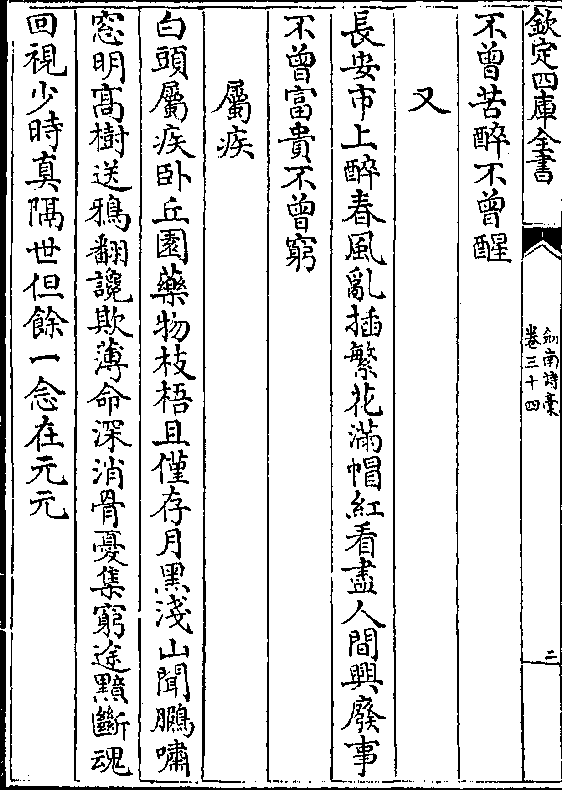 欽定四庫全書
劍南詩稾
卷三十四
二
不曾苦醉不曾醒
又
長安市上醉春風亂插繁花滿帽紅看盡人間興廢事
不曾富貴不曾窮
屬疾
白頭屬疾卧丘園藥物枝梧且僅存月黑淺山聞鵩嘯
窓明高樹送鴉翻讒欺薄命深消骨憂集窮途黯斷魂
回視少時真隔世但餘一念在元元